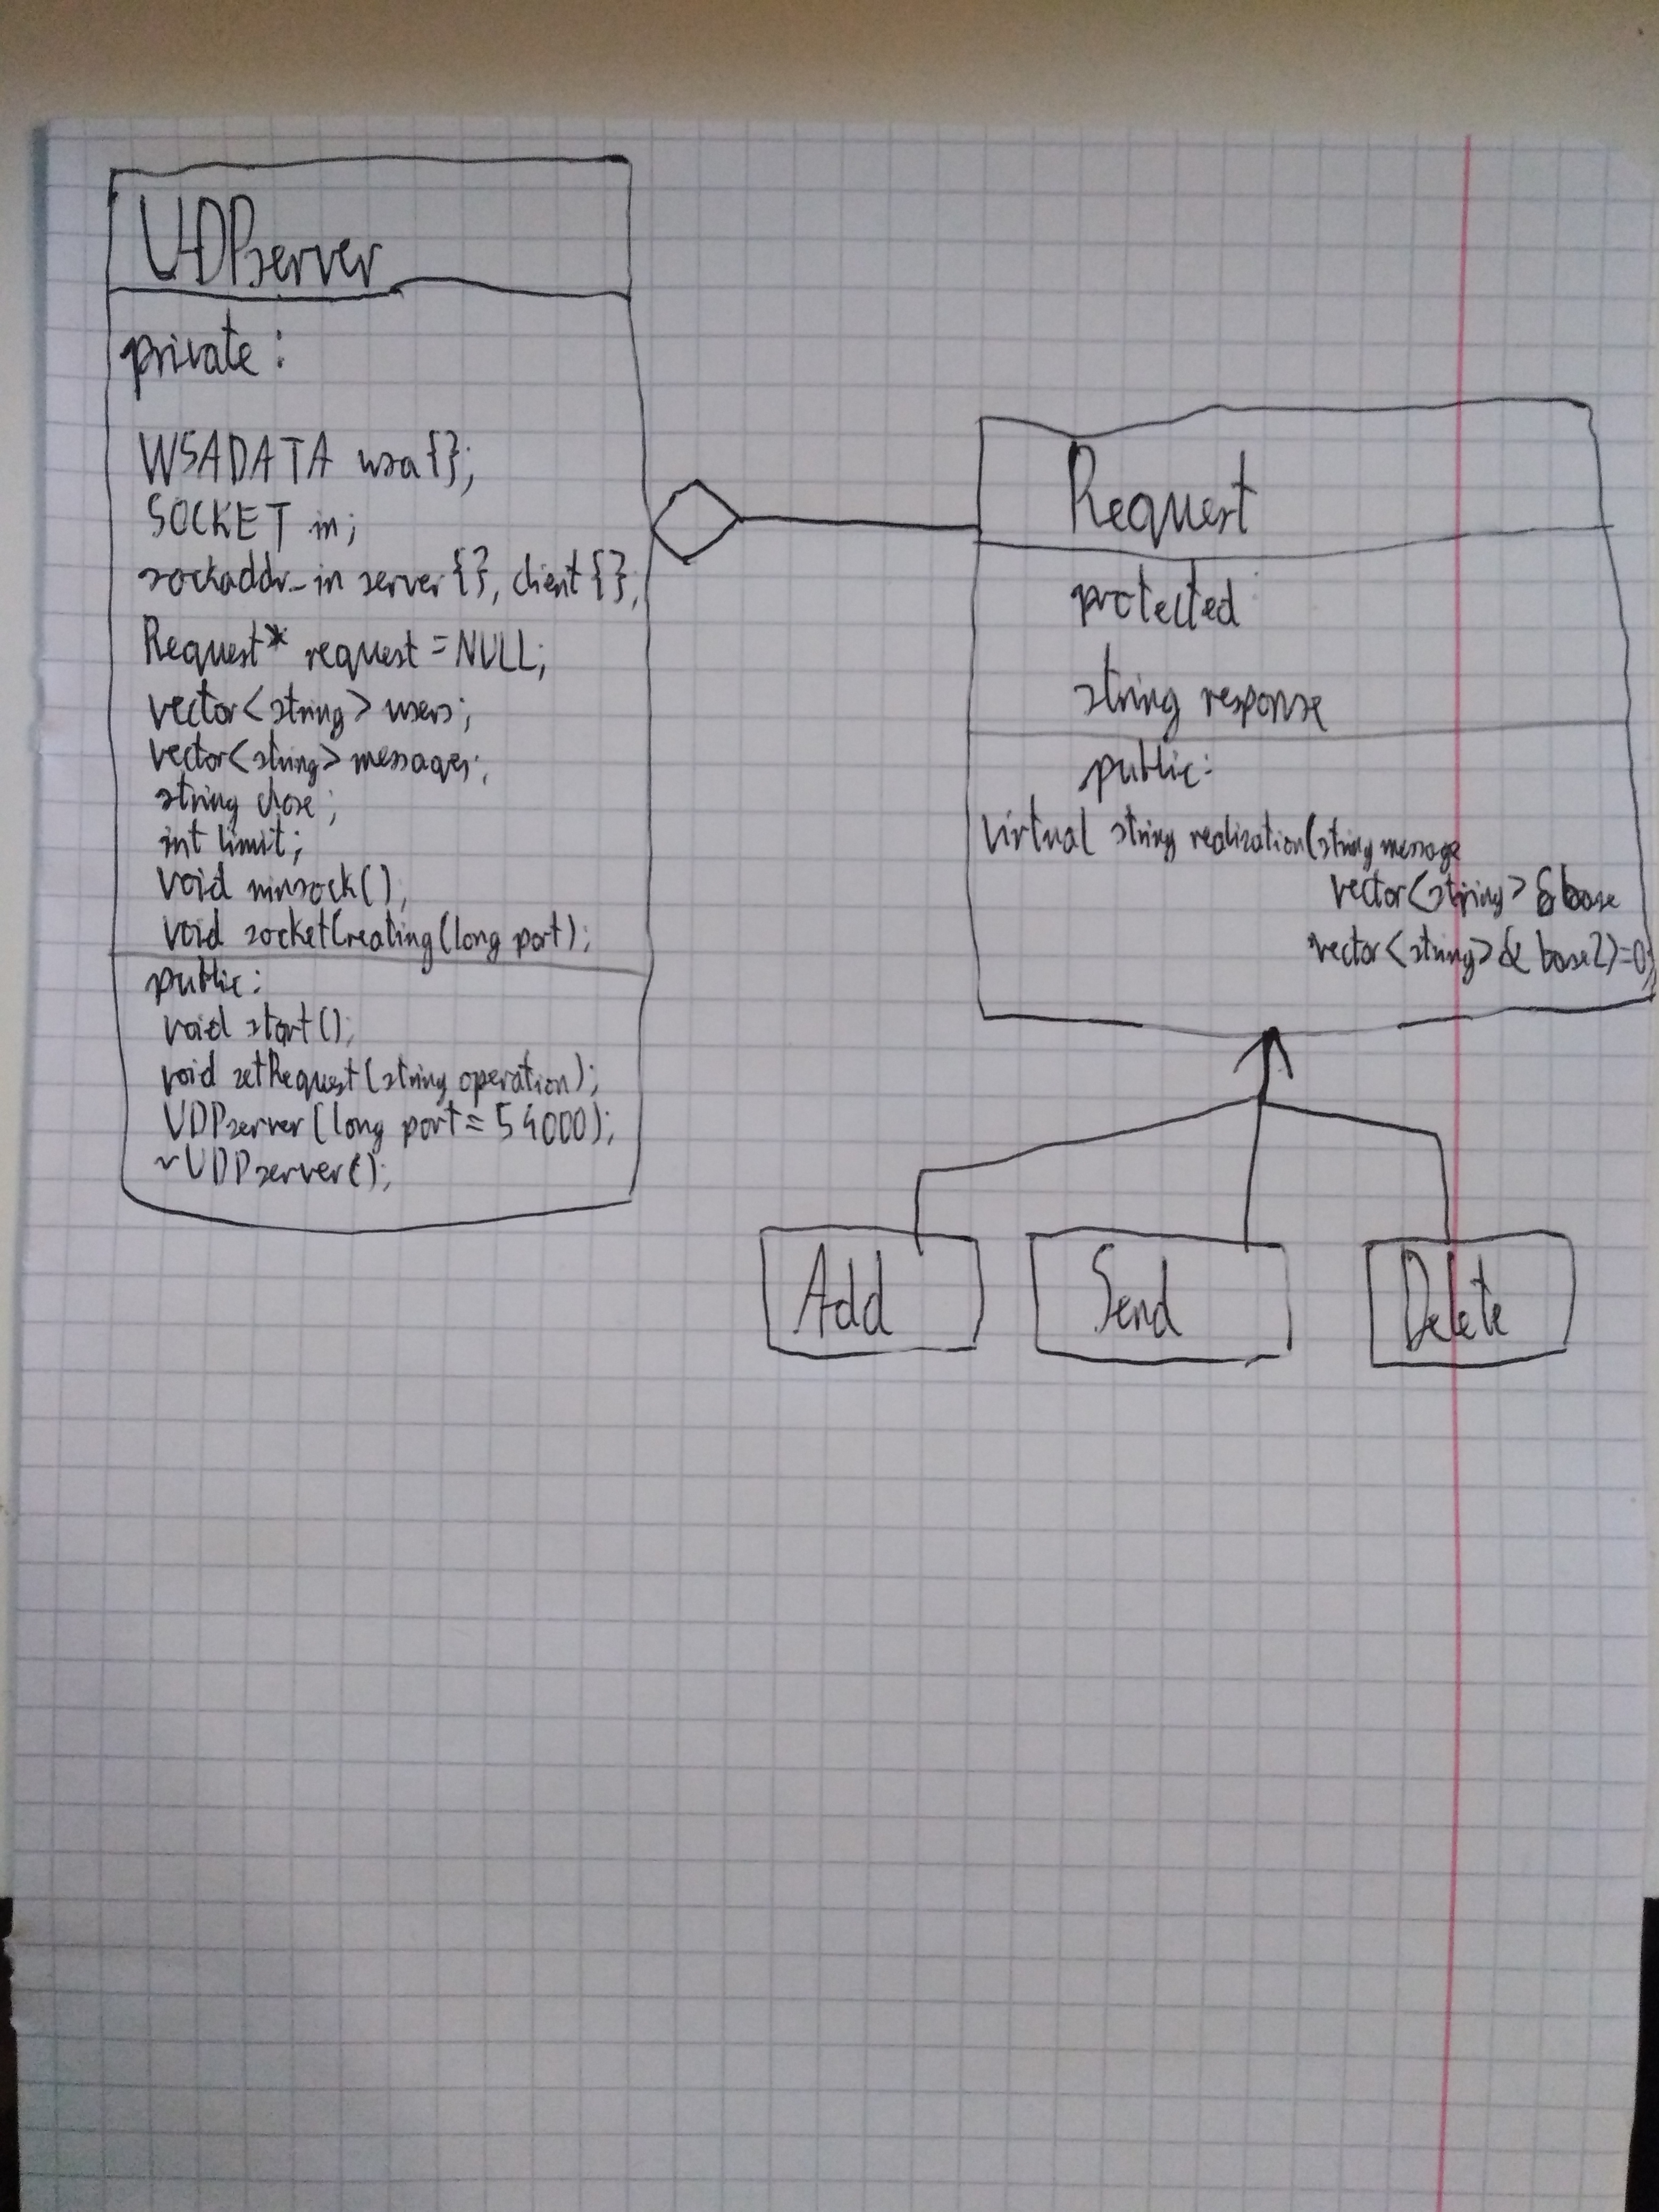 UDPserver
private:
WSADATA wsa{};
SOCKET in;
sockaddr_in server{}, client{};
Request* request = NULL;
vector<string> users;
vector<string> messages;
string chose;
int limit;
void minsock();
void socketCreating(long port);
public:
void start();
void setRequest(string operation);
UDPserver(long port = 54000);
~UDPserver();
Request
protected
string response
public:
virtual string realization(string message
vector<string> &base
vector<string> & base2)=0;
Add
Send
Delete